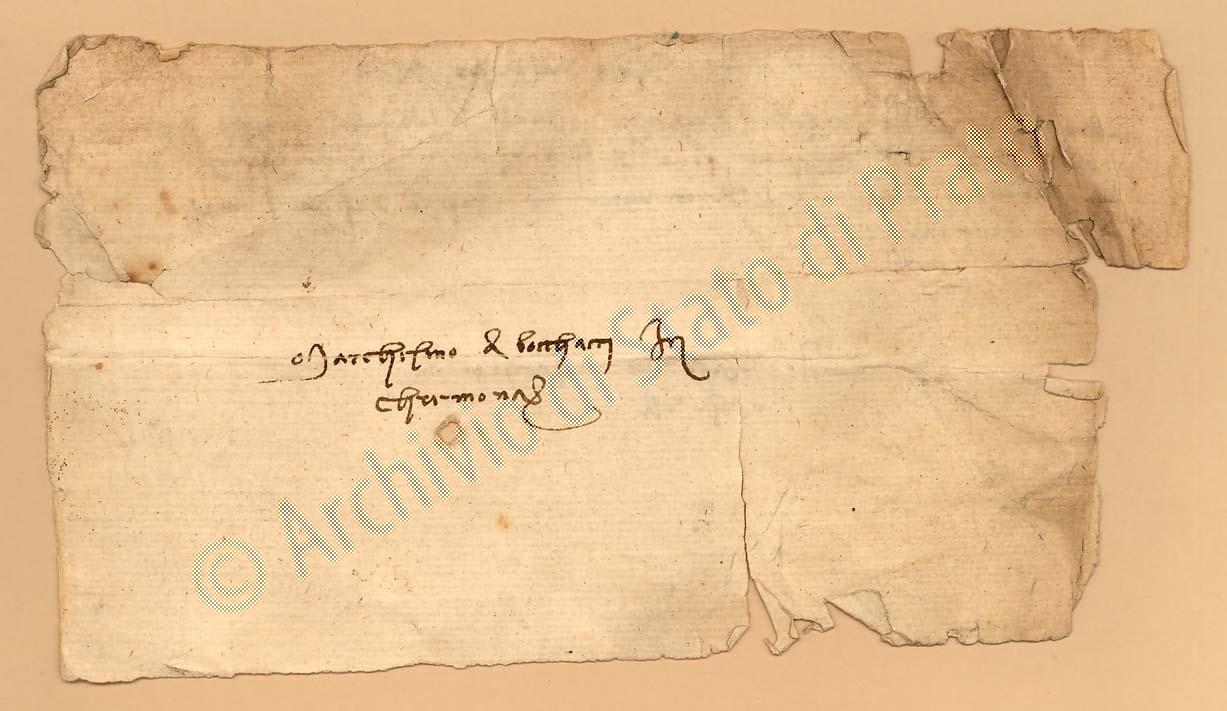 Marchesino de bocchacci In
chermona
© Archivio di Stato di Prato